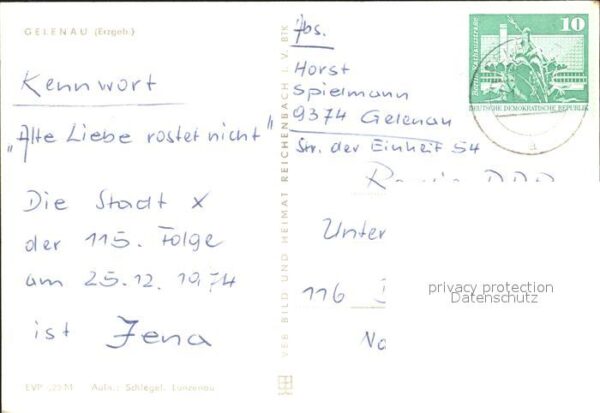 GELENAU (Erzgeb.)
Kennwort
„Alte Liebe rostet nicht"
Die Stadt X
der 115. Folge
am 25.12.1974
ist Jena
Abs.
Horst
Spielmann
9374 Gelenau
Str. der Einheit 54
Unter
116
No
privacy protection
Datenschutz
10
DEUTSCHE DEMOKRATISCHE REPUBLIK
VEB BILD UND HEIMAT REICHENBACH I. V. BTK
Aufn.: Schlegel, Lunzenau